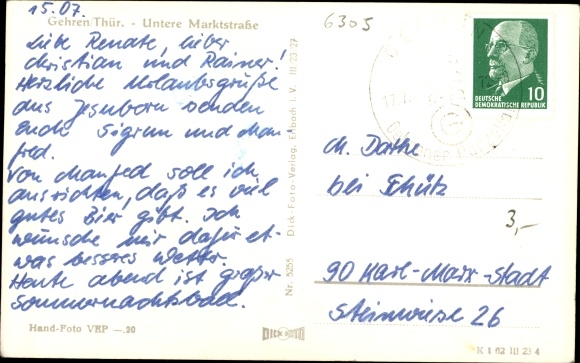 15.07.
Gehren/Thür. - Untere Marktstraße
Liebe Renate, lieber
Christian und Rainer!
Herzliche Urlaubsgrüße
aus Jesuborn senden
Euch Sigrun und Man-
fred.
Von Manfred soll ich
ausrichten, daß es viel
gutes Bier gibt. Ich
wünsche mir dafür et-
was besseres Wetter.
Heute abend ist großer
Sommernachtsball.
Hand-Foto VEP —.20
Nr. 5255 Dick-Foto-Verlag, Erlbach i. V. III 23 27
DICK FOTO
6305
DEUTSCHE
DEMOKRATISCHE REPUBLIK
10
Ch. Dathe
bei Schütz
3,-
90 Karl-Marx-Stadt
Steinwiese 26
K 1 62 III 23 4